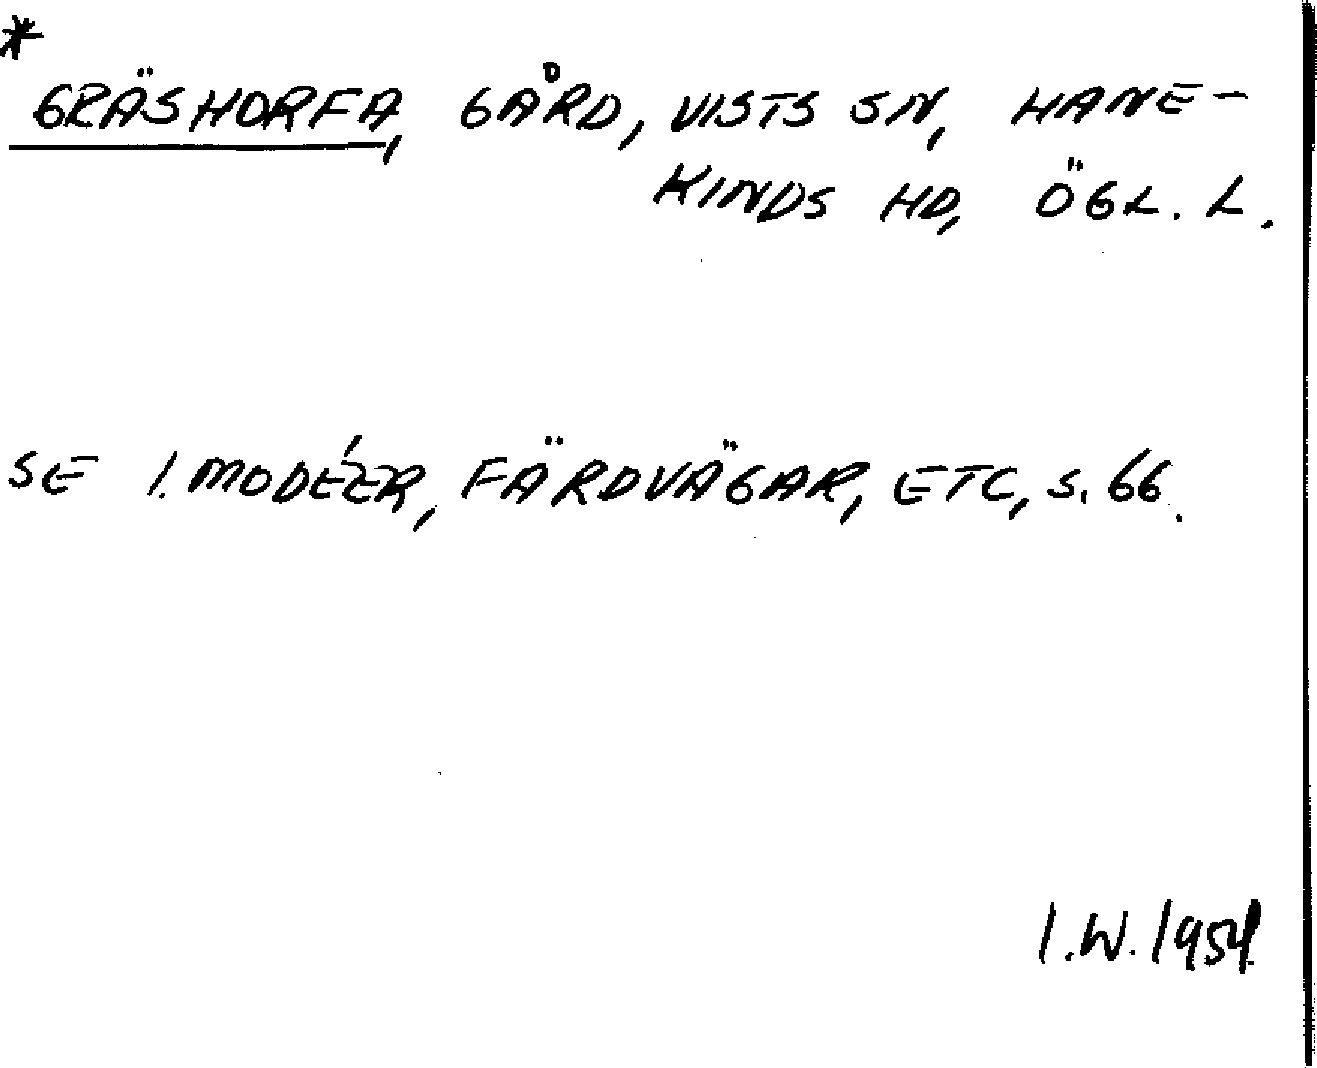 *
GRÄSHORFA, GÅRD, VISTS SN, HANE-
KINDS HD, ÖGL. L.
SE I. MODÉER, FÄRDVÄGAR, ETC, S. 66.
I.W. 1954.